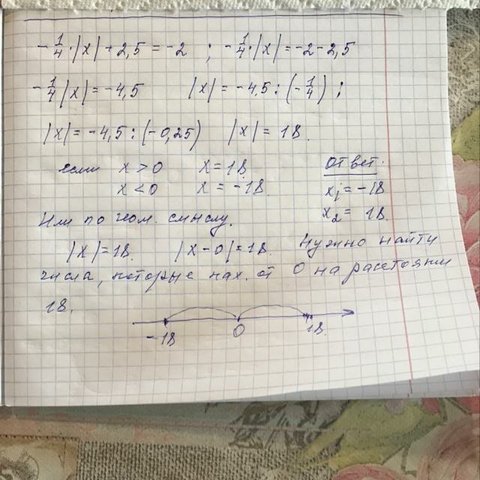 -1/4·|x|+2,5=-2 ; -1/4·|x|=-2-2,5
-1/4|x|=-4,5 |x|=-4,5:(-1/4);
|x|=-4,5:(-0,25) |x|=18.
если x>0 x=18.
x<0 x=-18.
Ответ.
x₁=-18
x₂=18.
Или по геом. смыслу.
|x|=18. |x-0|=18. Нужно найти
числа, которые нах. от 0 на расстоянии
18.
-18 0 18